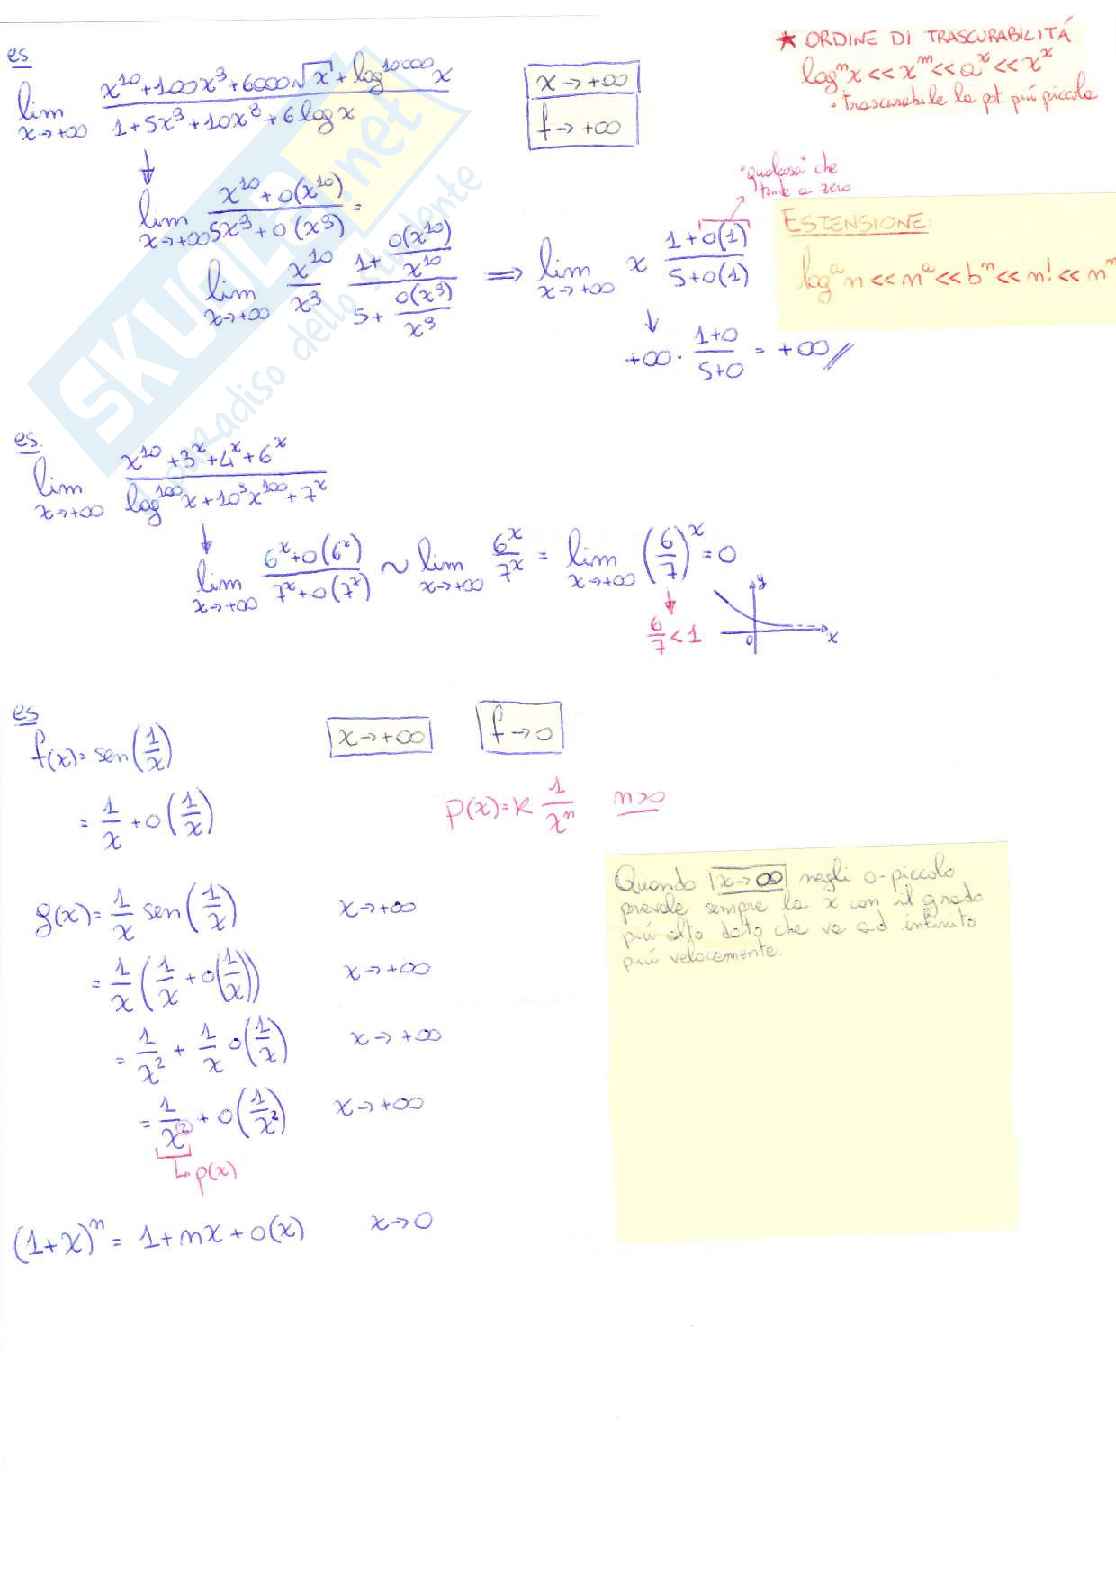 es
lim x→+∞ (x^10 + 100x^3 + 6000√x + log^10000 x) / (1 + 5x^3 + 10x^2 + 6 log x)
x→+∞
f→+∞
★ ORDINE DI TRASCURABILITÁ
log^n x << x^m << a^x << x^x
• trascurabile la pot più piccola
↓
lim x→+∞ (x^10 + o(x^10)) / (5x^3 + o(x^3)) =
lim x→+∞ x^10/x^3 (1 + o(x^10)/x^10) / (5 + o(x^3)/x^3) ⇒ lim x→+∞ x (1 + o(1)) / (5 + o(1))
"qualcosa" che
tende a zero
↓
+∞ · (1+0)/(5+0) = +∞ //
ESTENSIONE:
log^a n << n^a << b^n << n! << n^n
SKUOLA.net
il paradiso dello studente
es.
lim x→+∞ (x^10 + 3^x + 4^x + 6^x) / (log^100 x + 10^3 x^100 + 7^x)
↓
lim x→+∞ (6^x + o(6^x)) / (7^x + o(7^x)) ~ lim x→+∞ 6^x/7^x = lim x→+∞ (6/7)^x = 0
↓
6/7 < 1
y
0
x
es
f(x) = sen(1/x)
x→+∞
f→0
= 1/x + o(1/x)
p(x) = k 1/x^n n>0
g(x) = 1/x sen(1/x) x→+∞
= 1/x (1/x + o(1/x)) x→+∞
= 1/x^2 + 1/x o(1/x) x→+∞
= 1/x^2 + o(1/x^2) x→+∞
↳ p(x)
(1+x)^n = 1 + nx + o(x) x→0
Quando x→∞ negli o-piccolo
prevale sempre la x con il grado
più alto dato che va ad infinito
più velocemente.